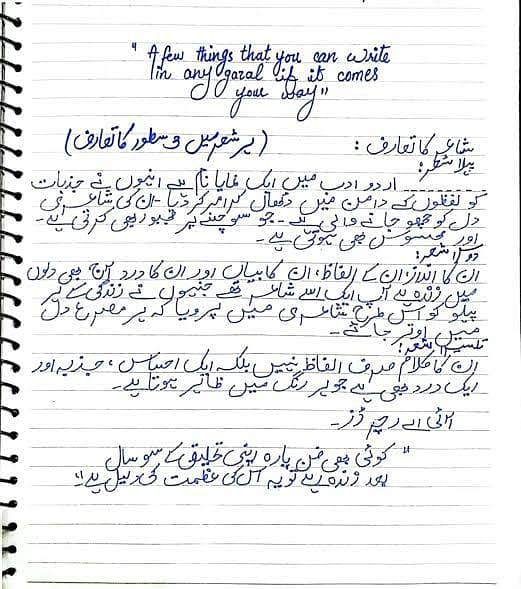 "A few things that you can write
in any gazal if it comes
your way"
شاعر کا تعارف : (ہر شعر میں 3 سطور کا تعارف)
پہلا شعر:
ــــــــــــ اردو ادب میں ایک نمایا نام ہے انہوں نے جذبات
کو لفظوں کے دامن میں ڈھال کر امر کر دیا۔ ان کی شاعری
دل کو چھو جانے والی ہے۔ جو سوچنے پر مجبور بھی کرتی ہے۔
اور محسوس بھی ہوتی ہے۔
دوسرا شعر:
ان کا انداز، ان کے الفاظ، ان کا بیاں اور ان کا درد آج بھی دلوں
میں زندہ ہے آپ ایک ایسے شاعر تھے جنہوں نے زندگی کے ہر
پہلو کو اس طرح شاعری میں پرویا کہ ہر مصرع دل
میں اوتر جائے۔
تیسرا شعر:
ان کا کلام صرف الفاظ نہیں بلکہ ایک احساس، جذبہ اور
ایک درد بھی ہے جو ہر رنگ میں ظاہر ہوتا ہے۔
آئی اے رچرڈز۔
"کوئی بھی فن پارہ اپنی تخلیق کے سو سال
بعد زندہ رہے تو یہ اس کی عظمت کی دلیل ہے"۔